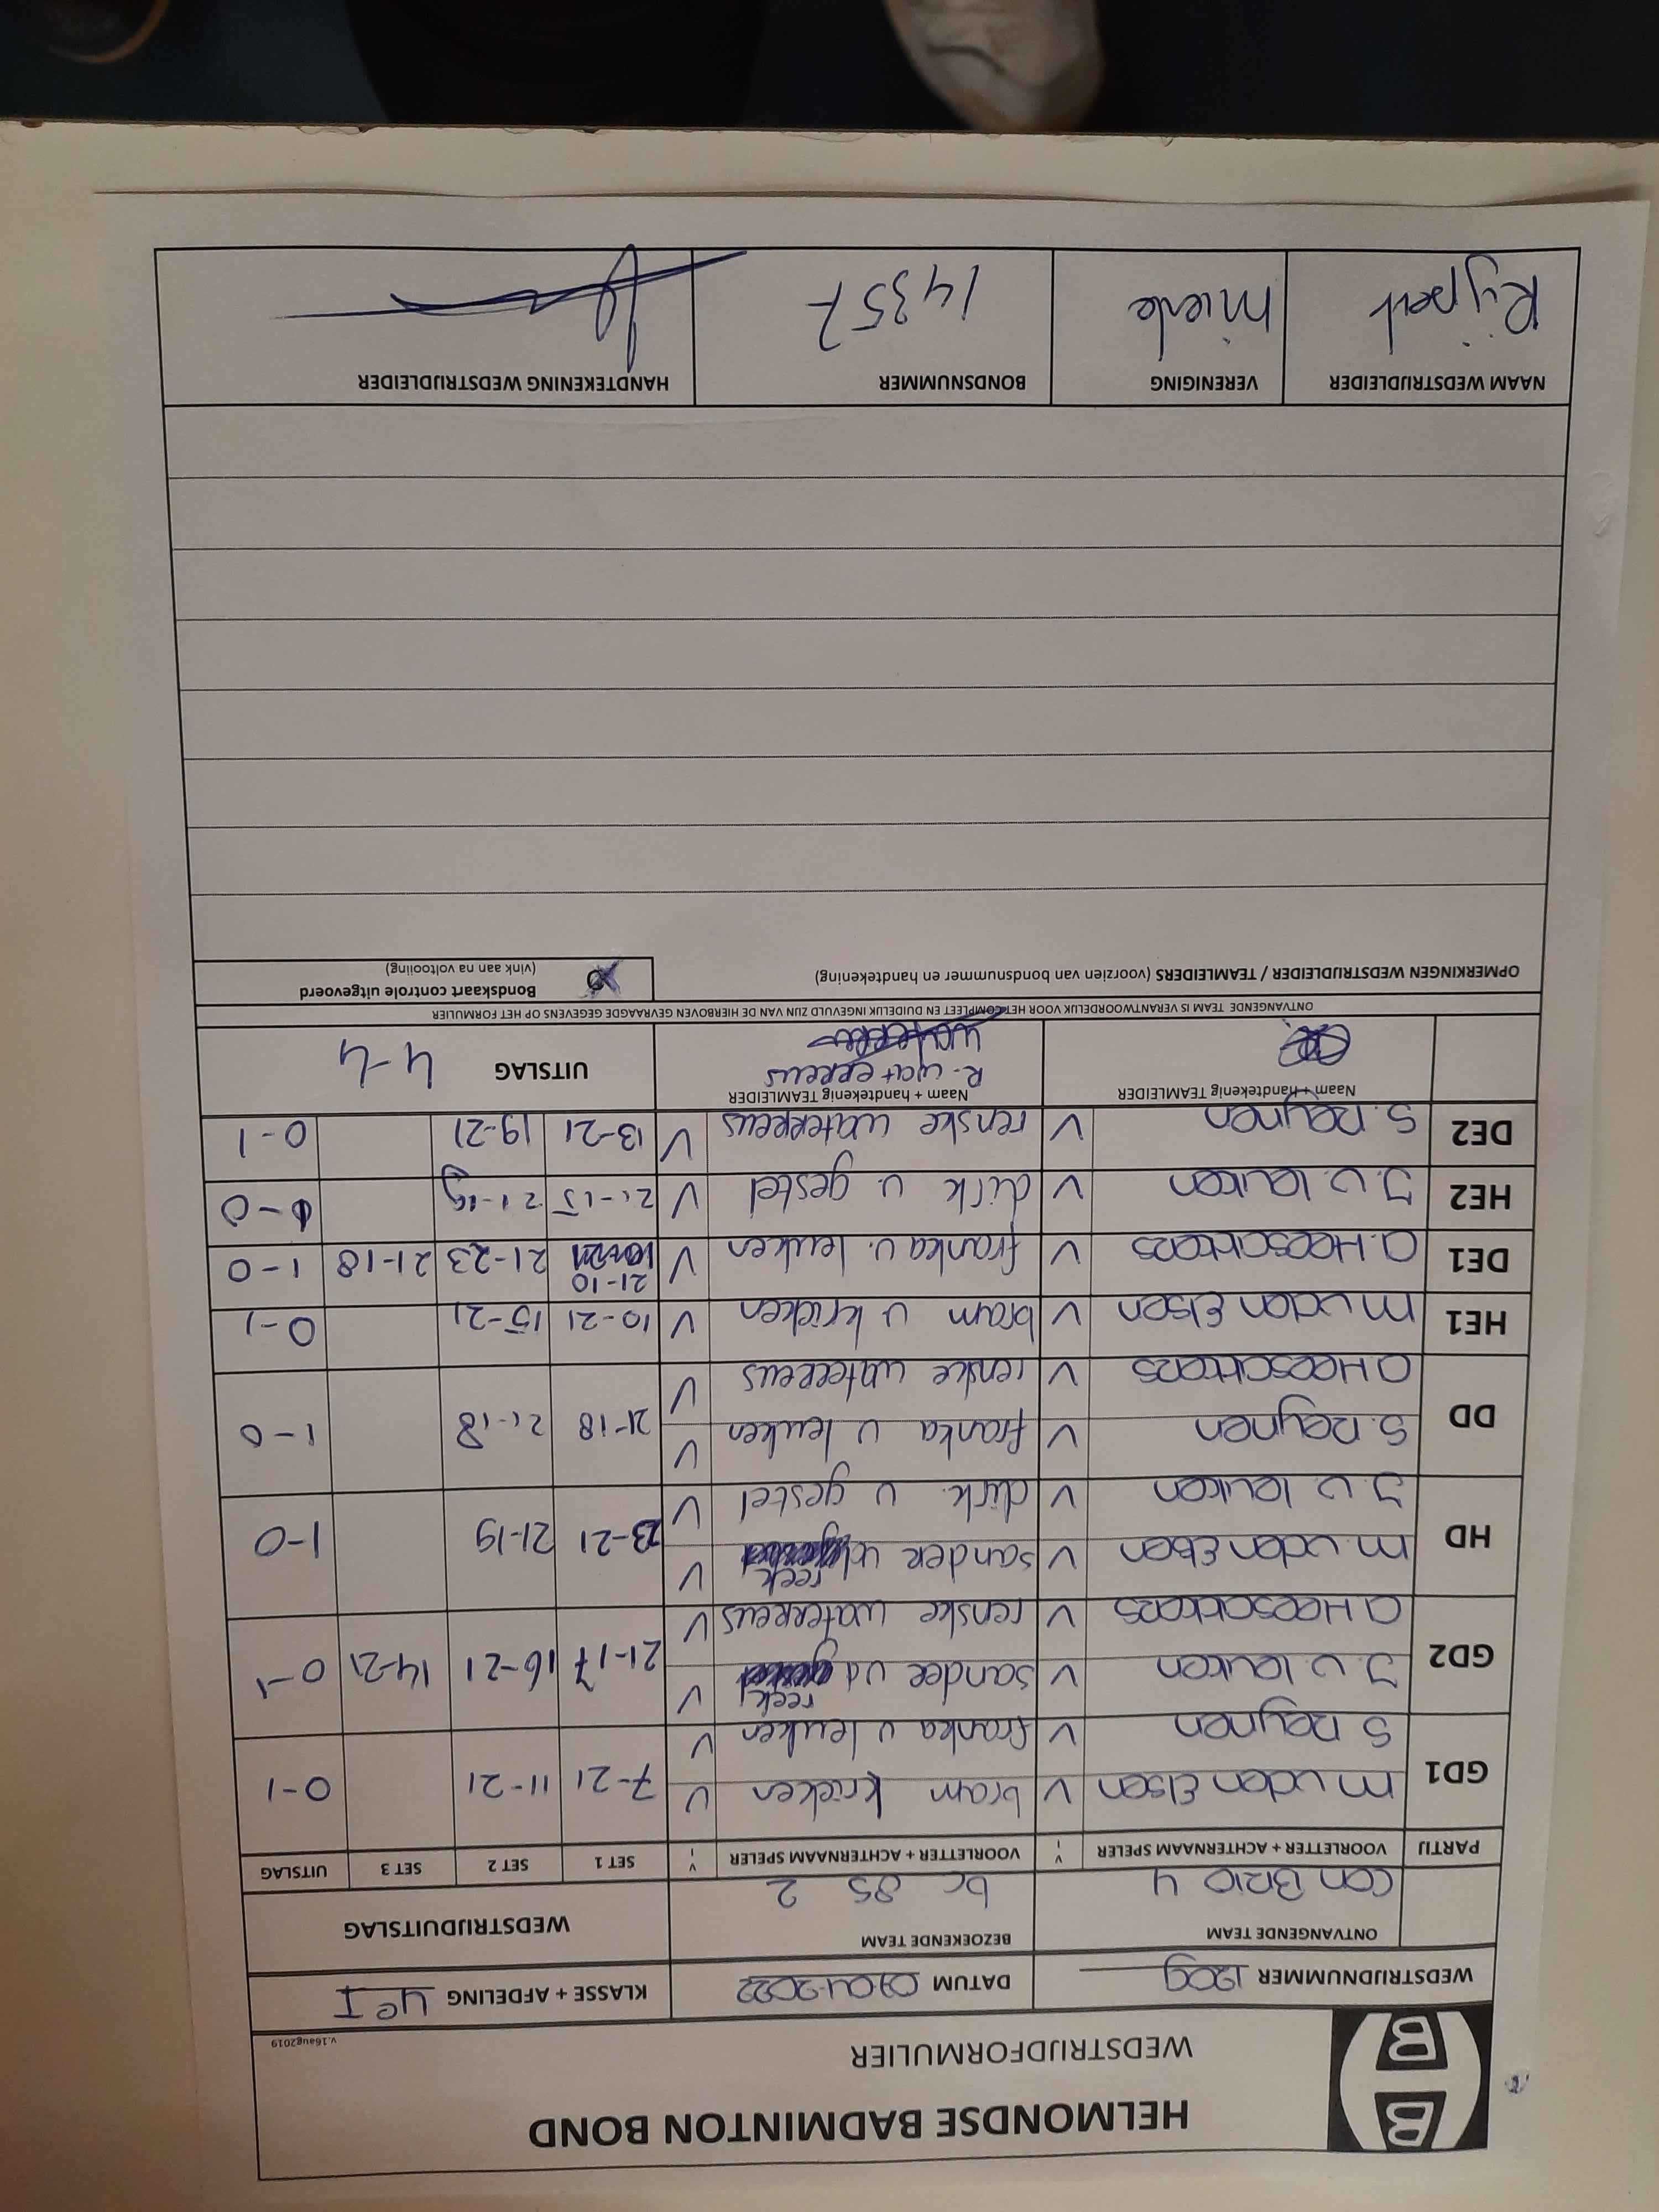 HELMONDSE BADMINTON BOND
WEDSTRIJDFORMULIER
v.16aug2019
WEDSTRIJDNUMMER 1209 DATUM 01-04-2022 KLASSE + AFDELING 4e I
ONTVANGENDE TEAM BEZOEKENDE TEAM WEDSTRIJDUITSLAG
CON BRIO 4 bc 85 2
PARTIJ VOORLETTER + ACHTERNAAM SPELER V VOORLETTER + ACHTERNAAM SPELER V SET 1 SET 2 SET 3 UITSLAG
GD1 M vden Elsen V bram kricken V 7-21 11-21 0-1
S Reynen V franka v leuken V
GD2 J. v. leuken V sander vd reek V 21-17 16-21 14-21 0-1
a Heesakkers V renske waterreus V
HD M. vden Elsen V sander vd reek V 23-21 21-19 1-0
J v leuken V dirk v gestel V
DD S. Reynen V franka v leuken V 21-18 21-18 1-0
a Heesakkers V renske waterreus V
HE1 M vden Elsen V bram v kricken V 10-21 15-21 0-1
DE1 a. Heesakkers V franka v. leuken V 21-10 21-23 21-18 1-0
HE2 J. v. leuken V dirk v. gestel V 21-15 21-19 1-0
DE2 S. Reynen V renske waterreus V 13-21 19-21 0-1
Naam + handtekenig TEAMLEIDER Naam + handtekenig TEAMLEIDER
R. waterreus UITSLAG 4-4
ONTVANGENDE TEAM IS VERANTWOORDELIJK VOOR HET COMPLEET EN DUIDELIJK INGEVULD ZIJN VAN DE HIERBOVEN GEVRAAGDE GEGEVENS OP HET FORMULIER
OPMERKINGEN WEDSTRIJDLEIDER / TEAMLEIDERS (voorzien van bondsnummer en handtekening)
Bondskaart controle uitgevoerd
(vink aan na voltooiing)
NAAM WEDSTRIJDLEIDER VERENIGING BONDSNUMMER HANDTEKENING WEDSTRIJDLEIDER
Mierlo 14357